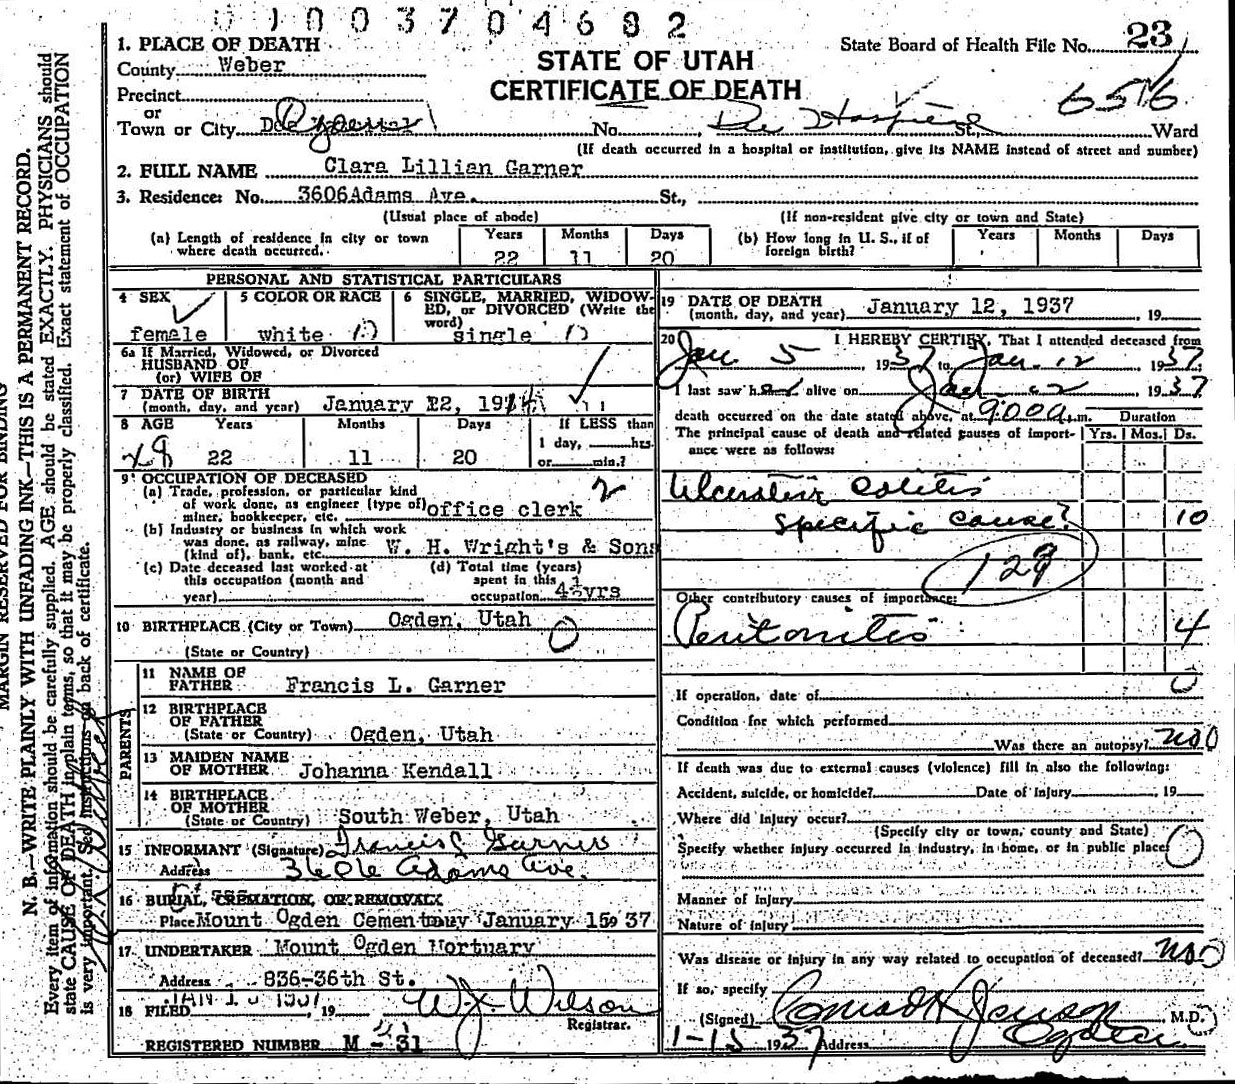 003704682
1. PLACE OF DEATH
County Weber
Precinct
or
Town or City Ogden No. Dee Hospital St., Ward
(If death occurred in a hospital or institution, give its NAME instead of street and number)
STATE OF UTAH
CERTIFICATE OF DEATH
State Board of Health File No. 23
6516
2. FULL NAME Clara Lillian Garner
3. Residence: No. 3606 Adams Ave. St.,
(Usual place of abode) (If non-resident give city or town and State)
(a) Length of residence in city or town where death occurred. Years 22 Months 11 Days 20
(b) How long in U. S., if of foreign birth? Years Months Days
PERSONAL AND STATISTICAL PARTICULARS
4 SEX female
5 COLOR OR RACE white
6 SINGLE, MARRIED, WIDOWED, or DIVORCED (Write the word) single
6a If Married, Widowed, or Divorced
HUSBAND OF
(or) WIFE OF
7 DATE OF BIRTH
(month, day, and year) January 22, 1914
8 AGE Years 22 Months 11 Days 20 If LESS than 1 day, hrs. or min.?
9 OCCUPATION OF DECEASED
(a) Trade, profession, or particular kind
of work done, as engineer (type of) office clerk
miner, bookkeeper, etc.
(b) Industry or business in which work
was done, as railway, mine W. H. Wright's & Sons
(kind of), bank, etc.
(c) Date deceased last worked at
this occupation (month and
year)
(d) Total time (years)
spent in this
occupation 4½yrs
10 BIRTHPLACE (City or Town) Ogden, Utah
(State or Country)
PARENTS
11 NAME OF
FATHER Francis L. Garner
12 BIRTHPLACE
OF FATHER
(State or Country) Ogden, Utah
13 MAIDEN NAME
OF MOTHER Johanna Kendall
14 BIRTHPLACE
OF MOTHER
(State or Country) South Weber, Utah
15 INFORMANT (Signature) Francis L Garner
Address 3606 Adams Ave.
16 BURIAL, CREMATION, OR REMOVAL
Place Mount Ogden Cementary January 15, 37
17 UNDERTAKER Mount Ogden Mortuary
Address 836-36th St.
18 FILED JAN 1937, 19 W. J. Wilson
Registrar.
REGISTERED NUMBER M - 31
19 DATE OF DEATH
(month, day, and year) January 12, 1937 , 19
20 I HEREBY CERTIFY, That I attended deceased from
Jan 5 1937 to Jan. 12 1937.
I last saw her alive on Jan 12 1937
death occurred on the date stated above, at 9:00 a.m. Duration
The principal cause of death and related causes of importance were as follows: Yrs. Mos. Ds.
Ulcerative Colitis
specific cause? 10
129
Other contributory causes of importance:
Peritonitis 4
If operation, date of
Condition for which performed
Was there an autopsy? no
If death was due to external causes (violence) fill in also the following:
Accident, suicide, or homicide? Date of injury 19
Where did injury occur?
(Specify city or town, county and State)
Specify whether injury occurred in industry, in home, or in public place:
Manner of Injury
Nature of injury
Was disease or injury in any way related to occupation of deceased? no
If so, specify
(Signed) Conrad H Jenson M.D.
1-15 1937 Address Ogden
MARGIN RESERVED FOR BINDING
N. B.—WRITE PLAINLY WITH UNFADING INK—THIS IS A PERMANENT RECORD.
Every item of information should be carefully supplied. AGE should be stated EXACTLY. PHYSICIANS should
state CAUSE OF DEATH in plain terms, so that it may be properly classified. Exact statement of OCCUPATION
is very important. See instructions on back of certificate.